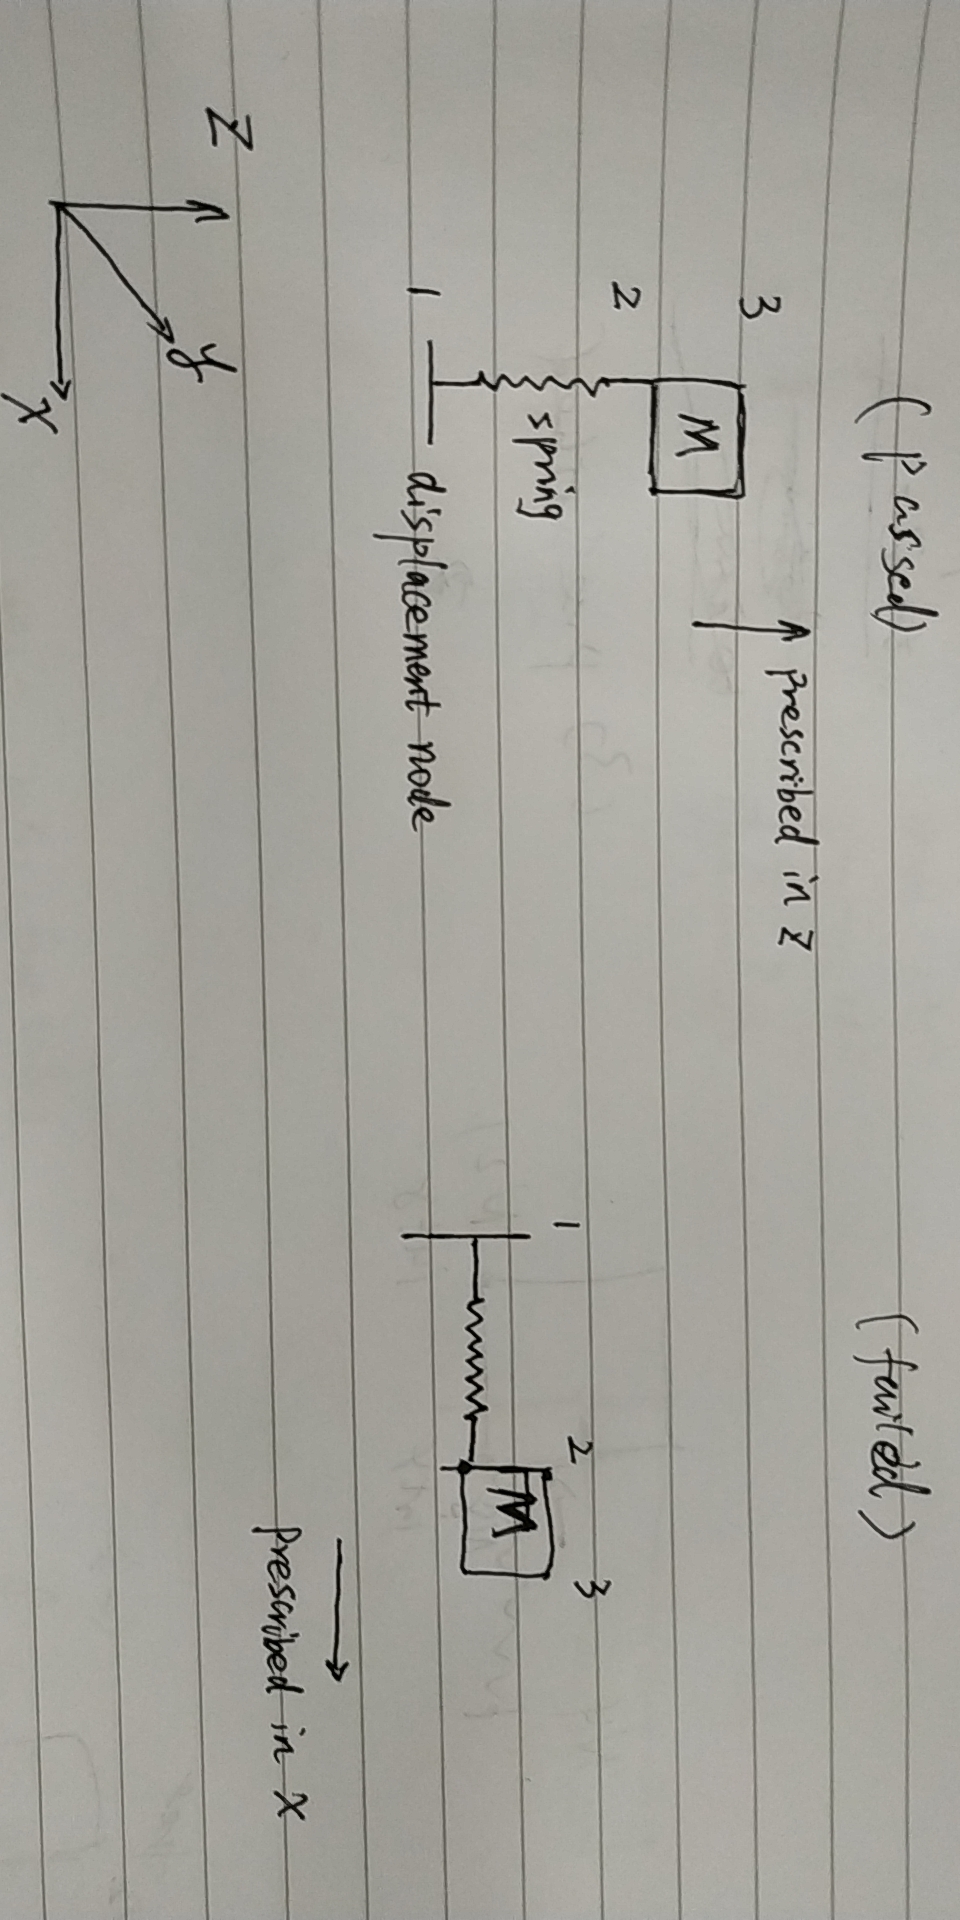 (Passed)
(failed)
3
↑ prescribed in z
M
2
spring
1
displacement node
1
2
3
M
→
prescribed in x
Z
y
x